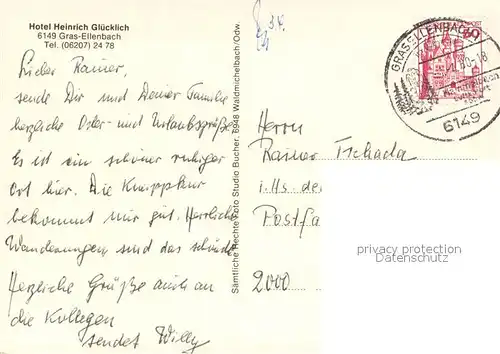 Hotel Heinrich Glücklich
6149 Gras-Ellenbach
Tel. (06207) 24 78
Lieber Rainer,
sende Dir und Deiner Familie
herzliche Oster- und Urlaubsgrüße.
Es ist ein schöner ruhiger
Ort hier. Die Kneippkur
bekommt mir gut. Herrliche
Wanderungen sind das schönste
Herzliche Grüße auch an
die Kollegen
sendet Willy
Sämtliche Rechte Foto Studio Bucher, 6948 Waldmichelbach/Odw.
GRASELLENBACH
6149
60
Herrn
Rainer Tschada
i. Hs de
Postfa
2000
privacy protection
Datenschutz